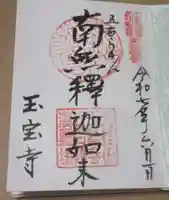 令和 年六月 日
五百らかん
南無釋迦如来
玉宝寺